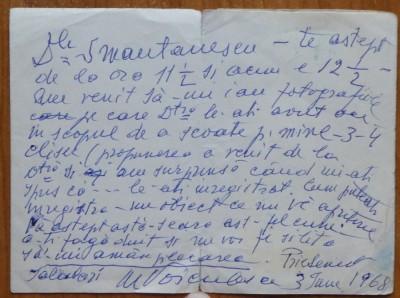 Dle Smantanescu – te astept
de la ora 11 1/2 si acum e 12 1/2 –
Am venit să-mi iau fotografiile
pe care Dtra le-ati avut
in scopul de a scoate p. mine – 3-4
clisee (propunerea a venit de la
Dtra si am surprinsă când mi-ati
spus că --- le-ati inregistrat. Cum puteati
inregistra – un obiect ce nu vă apartine
Vă astept astă-seara
si nu voi fi silită
să-mi amân plecarea.
Salutari M Voiculescu 3 Iune 1968